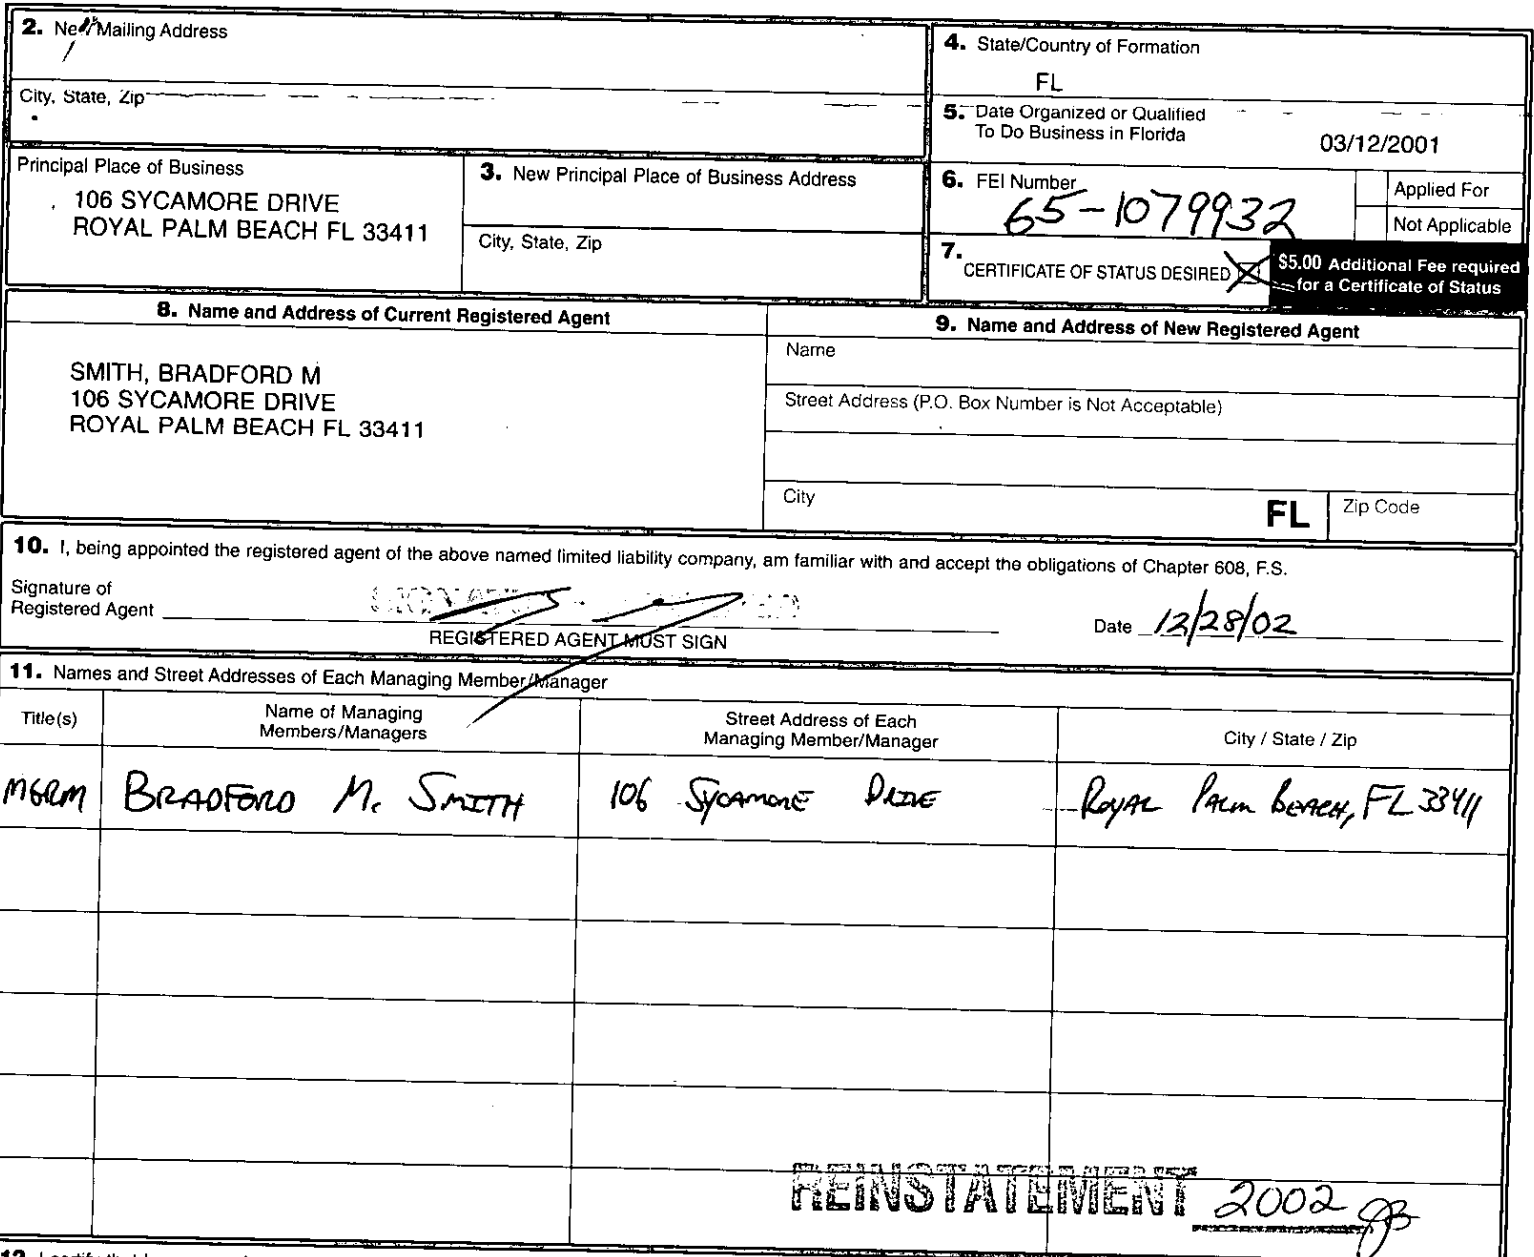 2. New Mailing Address
City, State, Zip
4. State/Country of Formation
FL
5. Date Organized or Qualified
To Do Business in Florida
03/12/2001
Principal Place of Business
106 SYCAMORE DRIVE
ROYAL PALM BEACH FL 33411
3. New Principal Place of Business Address
City, State, Zip
6. FEI Number
65-1079932
Applied For
Not Applicable
7. CERTIFICATE OF STATUS DESIRED
$5.00 Additional Fee required
for a Certificate of Status
8. Name and Address of Current Registered Agent
SMITH, BRADFORD M
106 SYCAMORE DRIVE
ROYAL PALM BEACH FL 33411
9. Name and Address of New Registered Agent
Name
Street Address (P.O. Box Number is Not Acceptable)
City
FL
Zip Code
10. I, being appointed the registered agent of the above named limited liability company, am familiar with and accept the obligations of Chapter 608, F.S.
Signature of
Registered Agent
REGISTERED AGENT MUST SIGN
Date 12/28/02
11. Names and Street Addresses of Each Managing Member/Manager
Title(s)
Name of Managing
Members/Managers
Street Address of Each
Managing Member/Manager
City / State / Zip
MGRM BRADFORD M. SMITH 106 SYCAMORE DRIVE ROYAL PALM BEACH, FL 33411
REINSTATEMENT 2002